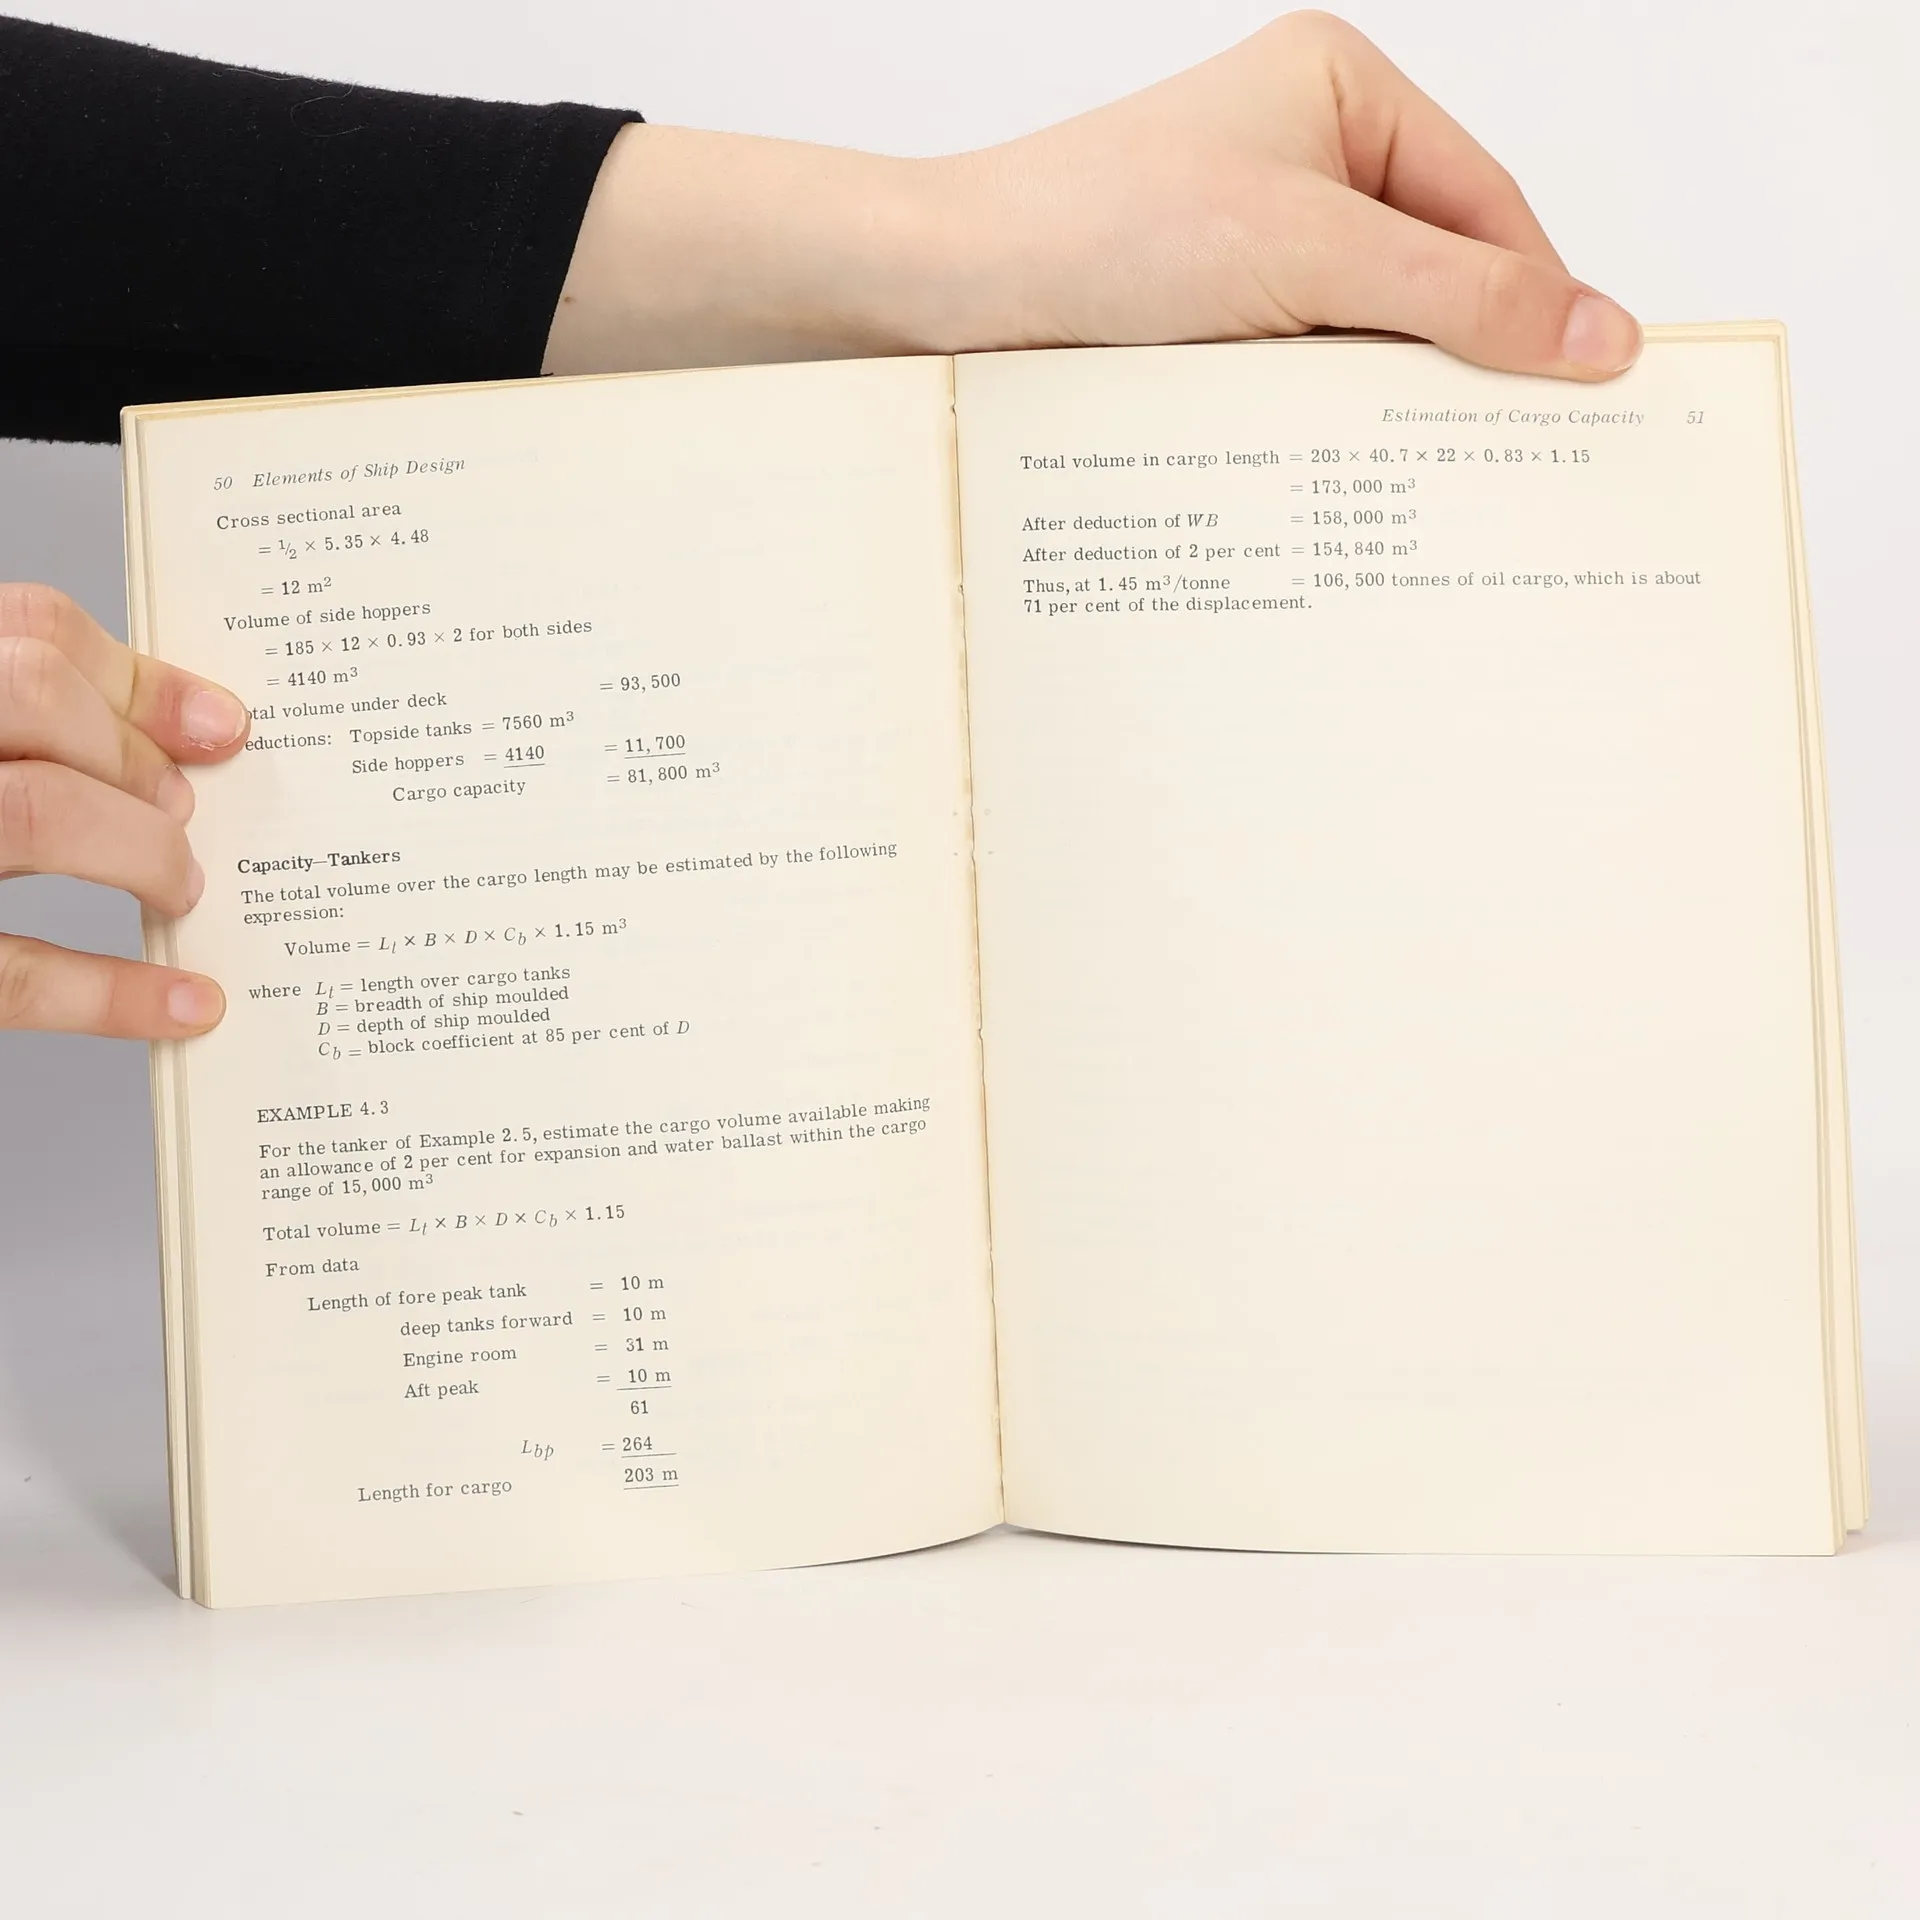 50 Elements of Ship Design
Cross sectional area
= 1/2 × 5.35 × 4.48
= 12 m²
Volume of side hoppers
= 185 × 12 × 0.93 × 2 for both sides
= 4140 m³
otal volume under deck = 93,500
eductions: Topside tanks = 7560 m³
Side hoppers = 4140 = 11,700
Cargo capacity = 81,800 m³
Capacity—Tankers
The total volume over the cargo length may be estimated by the following
expression:
Volume = Lt × B × D × Cb × 1.15 m³
where Lt = length over cargo tanks
B = breadth of ship moulded
D = depth of ship moulded
Cb = block coefficient at 85 per cent of D
EXAMPLE 4.3
For the tanker of Example 2.5, estimate the cargo volume available making
an allowance of 2 per cent for expansion and water ballast within the cargo
range of 15,000 m³
Total volume = Lt × B × D × Cb × 1.15
From data
Length of fore peak tank = 10 m
deep tanks forward = 10 m
Engine room = 31 m
Aft peak = 10 m
61
Lbp = 264
Length for cargo 203 m
Estimation of Cargo Capacity 51
Total volume in cargo length = 203 × 40.7 × 22 × 0.83 × 1.15
= 173,000 m³
After deduction of WB = 158,000 m³
After deduction of 2 per cent = 154,840 m³
Thus, at 1.45 m³/tonne = 106,500 tonnes of oil cargo, which is about
71 per cent of the displacement.